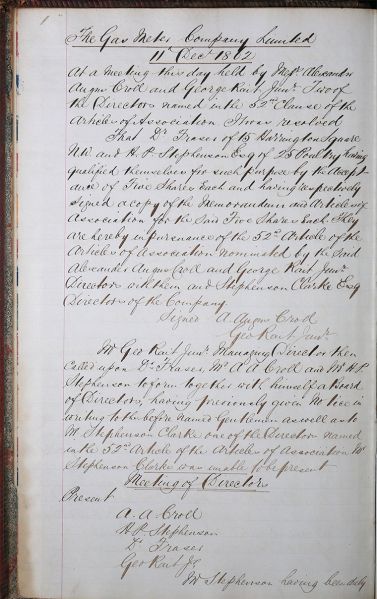 1
The Gas Meter Company Limited
11th Decr 1862
At a Meeting this day held by Messrs Alexander
Angus Croll and George Kent Junr Two of
the Directors named in the 52nd Clause of the
Articles of Association It was resolved
That Dr Fraser of 15 Harrington Square
N.W. and H. P. Stephenson Esq of 25 Poultry having
qualified themselves for such purpose by the Accept
ance of Five Shares Each and having respectively
signed a copy of the Memorandum and Articles of
Association for the said Five Shares Each They
are hereby in pursuance of the 52d Article of the
Articles of Association nominated by the Said
Alexander Angus Croll and George Kent Junr
Directors with them and Stephenson Clarke Esq
Directors of the Company.
Signed A. Angus Croll
Geo Kent Junr.
Mr Geo Kent Junr. Managing Director then
called upon Dr Fraser, Mr A. A. Croll and Mr H. P.
Stephenson to form together with himself a Board
of Directors, having previously given Notice in
writing to the before named Gentlemen as well as to
Mr Stephenson Clarke one of the Directors named
in the 52d Article of the Articles of Association Mr
Stephenson Clarke was unable to be present
Meeting of Directors
Present
A. A. Croll
H. P. Stephenson
Dr Fraser
Geo Kent Jr
Mr Stephenson having been duly